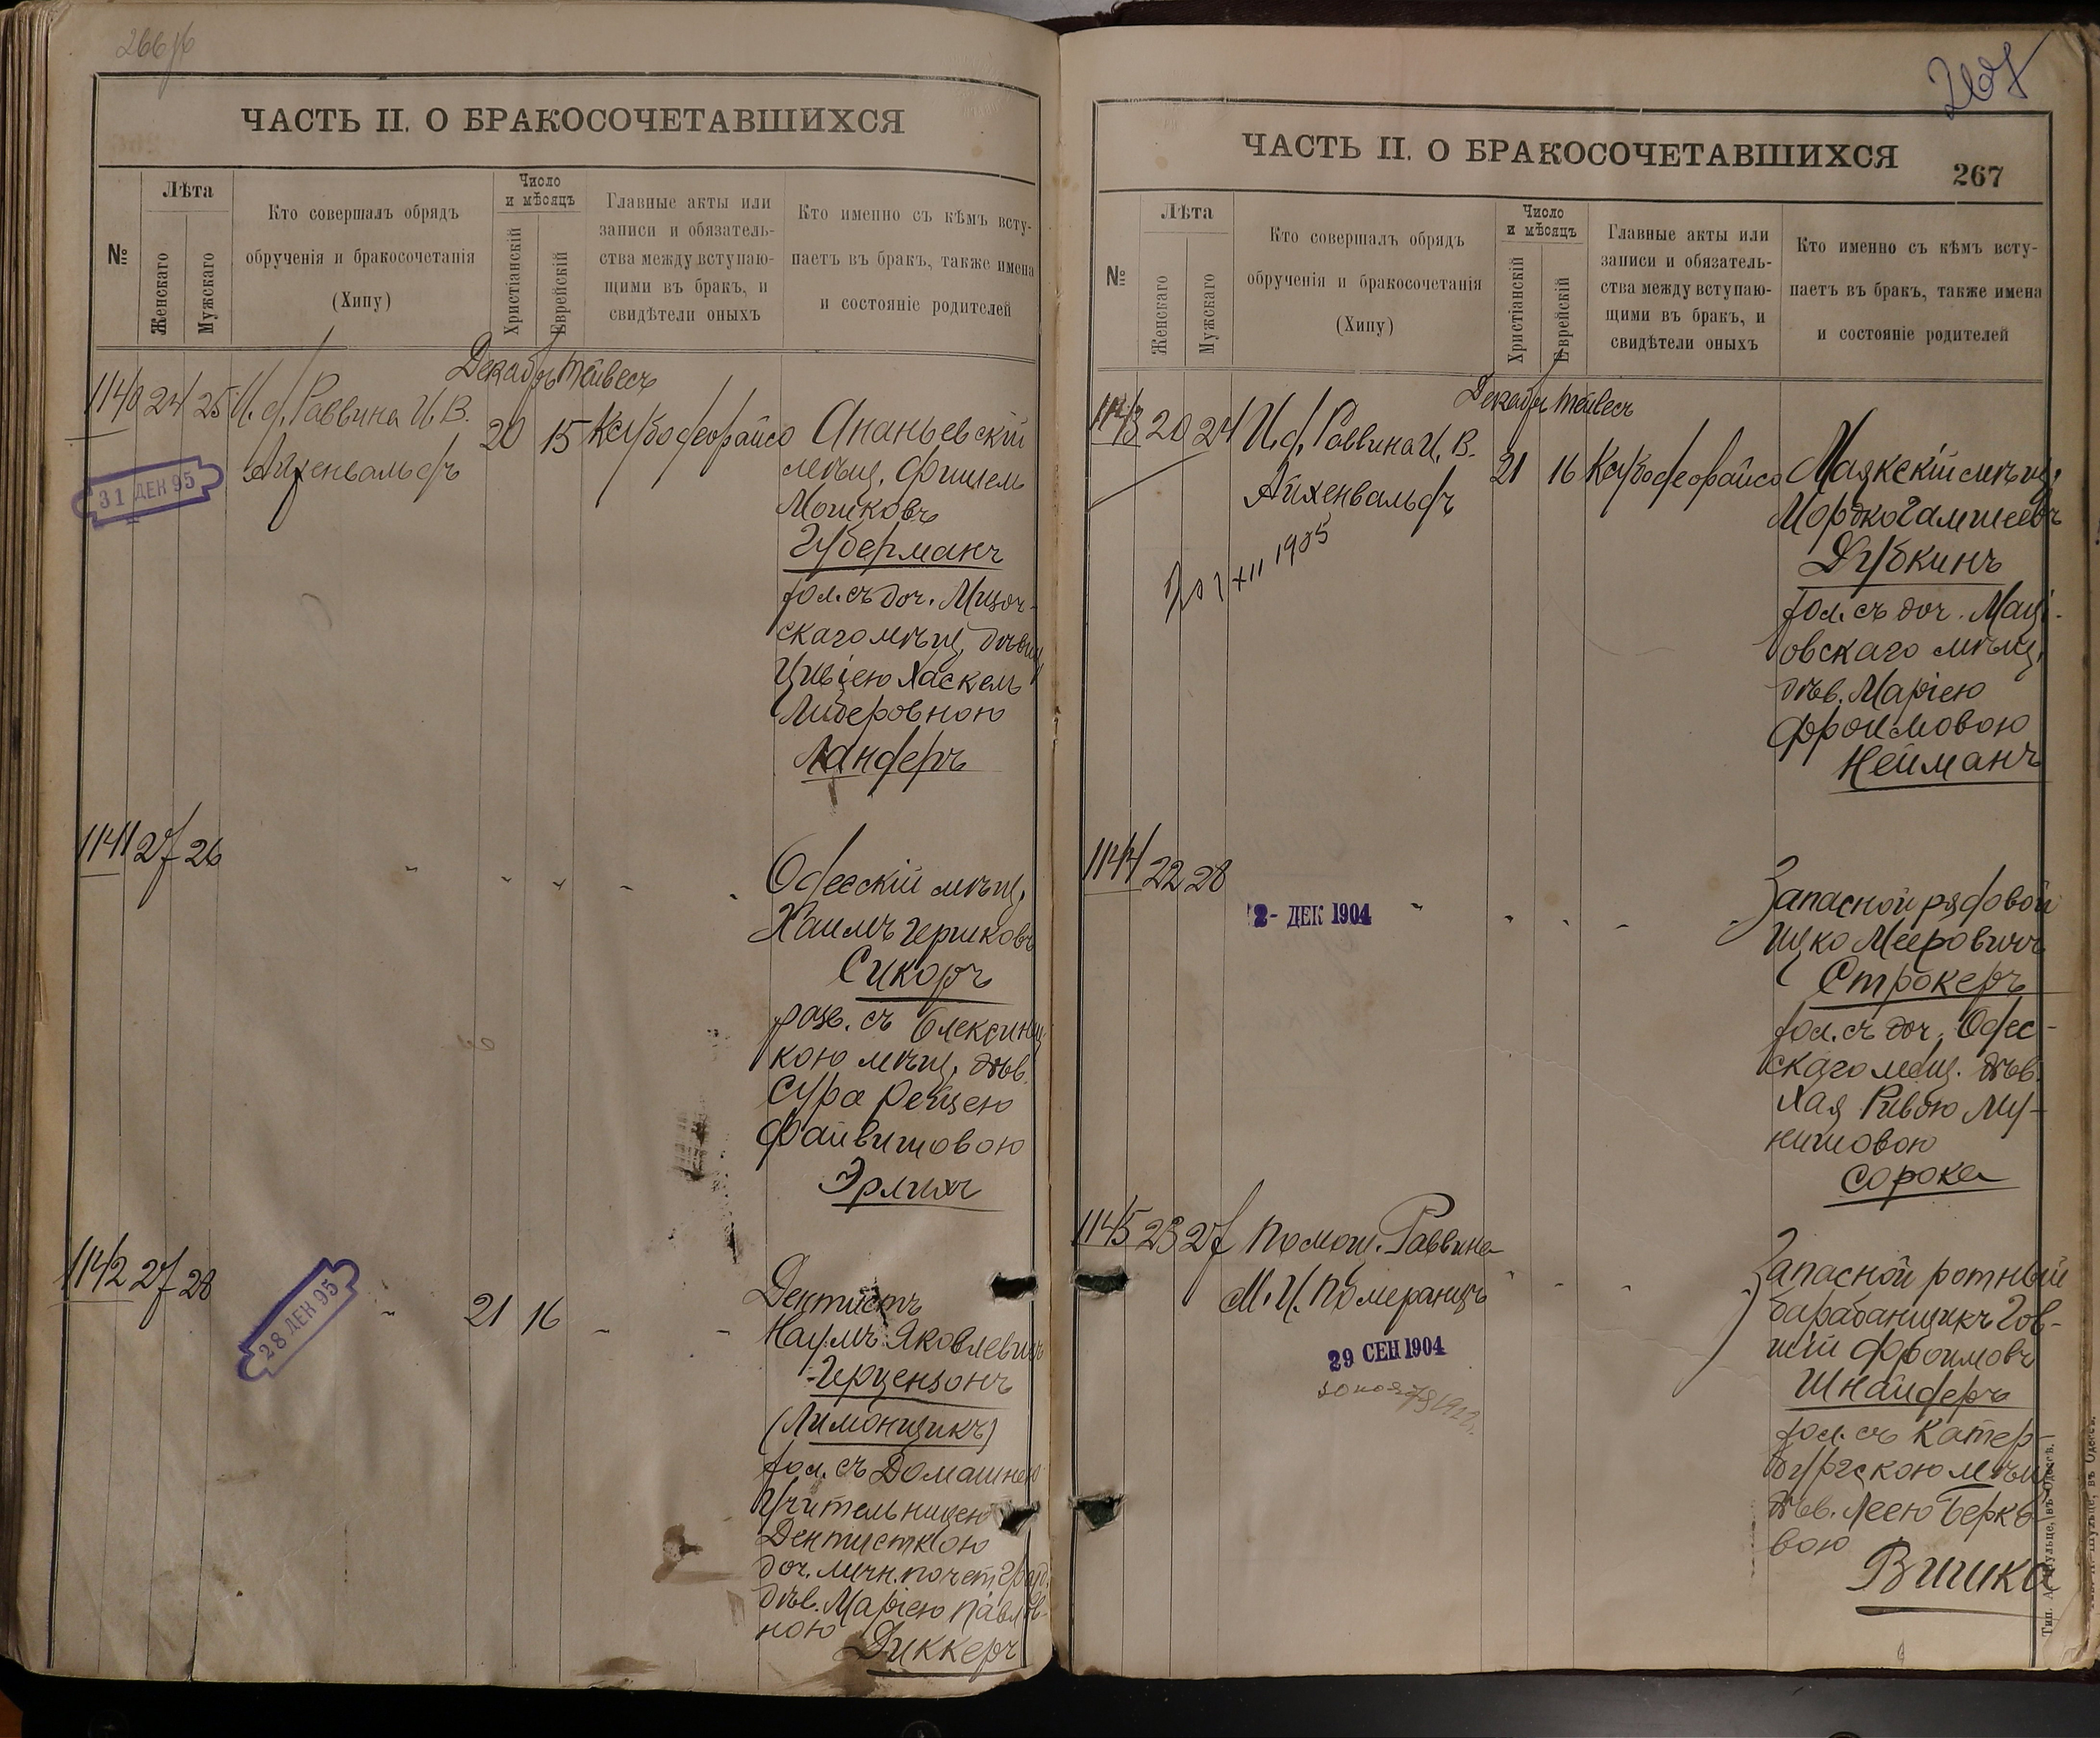 ЧАСТЬ II. О БРАКОСОЧЕТАВШИХСЯ
№
Лѣта
Женскаго
Мужскаго
Кто совершалъ обрядъ
обрученія и бракосочетанія
(Хипу)
Число
и мѣсяцъ
Христіанскій
Еврейскій
Главные акты или
записи и обязатель-
ства между вступаю-
щими въ бракъ, и
свидѣтели оныхъ
Кто именно съ кѣмъ всту-
паетъ въ бракъ, также имена
и состояніе родителей
Декабрь Тейвесъ
1140 24 25 И. д. Раввина И. В.
Айхенвальдъ
20 15
31 ДЕК 95
Ананьевскій
мѣщ. Фишель
Мошковъ
Губерманъ
хол. съ доч. Мизоч-
скаго мѣщ. дѣвиц.
Цивіею Хаскель
Либеровною
Ландеръ
1141 27 26 " " " " "
Одесскій мѣщ.
Хаимъ Гершковъ
Сикоръ
разв. съ Олексинец-
кою мѣщ. дѣв.
Сура Рейзею
Файвишовою
Эрлихъ
1142 27 28 " 21 16 " "
28 ДЕК 95
Дентистъ
Наумъ Яковлевичъ
Герцензонъ
(Лимонщикъ)
хол. съ Домашнею
Учительницею
Дентисткою
доч. личн. почет. гражд.
дѣв. Маріею Павлов-
ною
Диккеръ
267
ЧАСТЬ II. О БРАКОСОЧЕТАВШИХСЯ
267
№
Лѣта
Женскаго
Мужскаго
Кто совершалъ обрядъ
обрученія и бракосочетанія
(Хипу)
Число
и мѣсяцъ
Христіанскій
Еврейскій
Главные акты или
записи и обязатель-
ства между вступаю-
щими въ бракъ, и
свидѣтели оныхъ
Кто именно съ кѣмъ всту-
паетъ въ бракъ, также имена
и состояніе родителей
Декабрь Тейвесъ
1143 20 24 И. д. Раввина И. В.
Айхенвальдъ
21 16
XII 1905
Маякскій мѣщ.
Мордко Гамшеевъ
Дубкинъ
хол. съ доч. Маці-
овскаго мѣщ.
дѣв. Маріею
Фроимовою
Нейманъ
1144 22 28 " " " " "
2- ДЕК 1904
Запасной рядовой
Ицко Мееровичъ
Строкеръ
хол. съ доч. Одес-
скаго мѣщ. дѣв.
Хая Ривою Му-
нишовою
Сорока
1145 23 27 Помощ. Раввина
М. И. Померанцъ " " " "
29 СЕН 1904
Запасной ротный
барабанщикъ Гов-
шій Фроимовъ
Шнайдеръ
хол. съ Катер-
бургскою мѣщ.
дѣв. Леею Берко-
вою
Вишка
Тип. А. Шульце, въ Одессѣ.